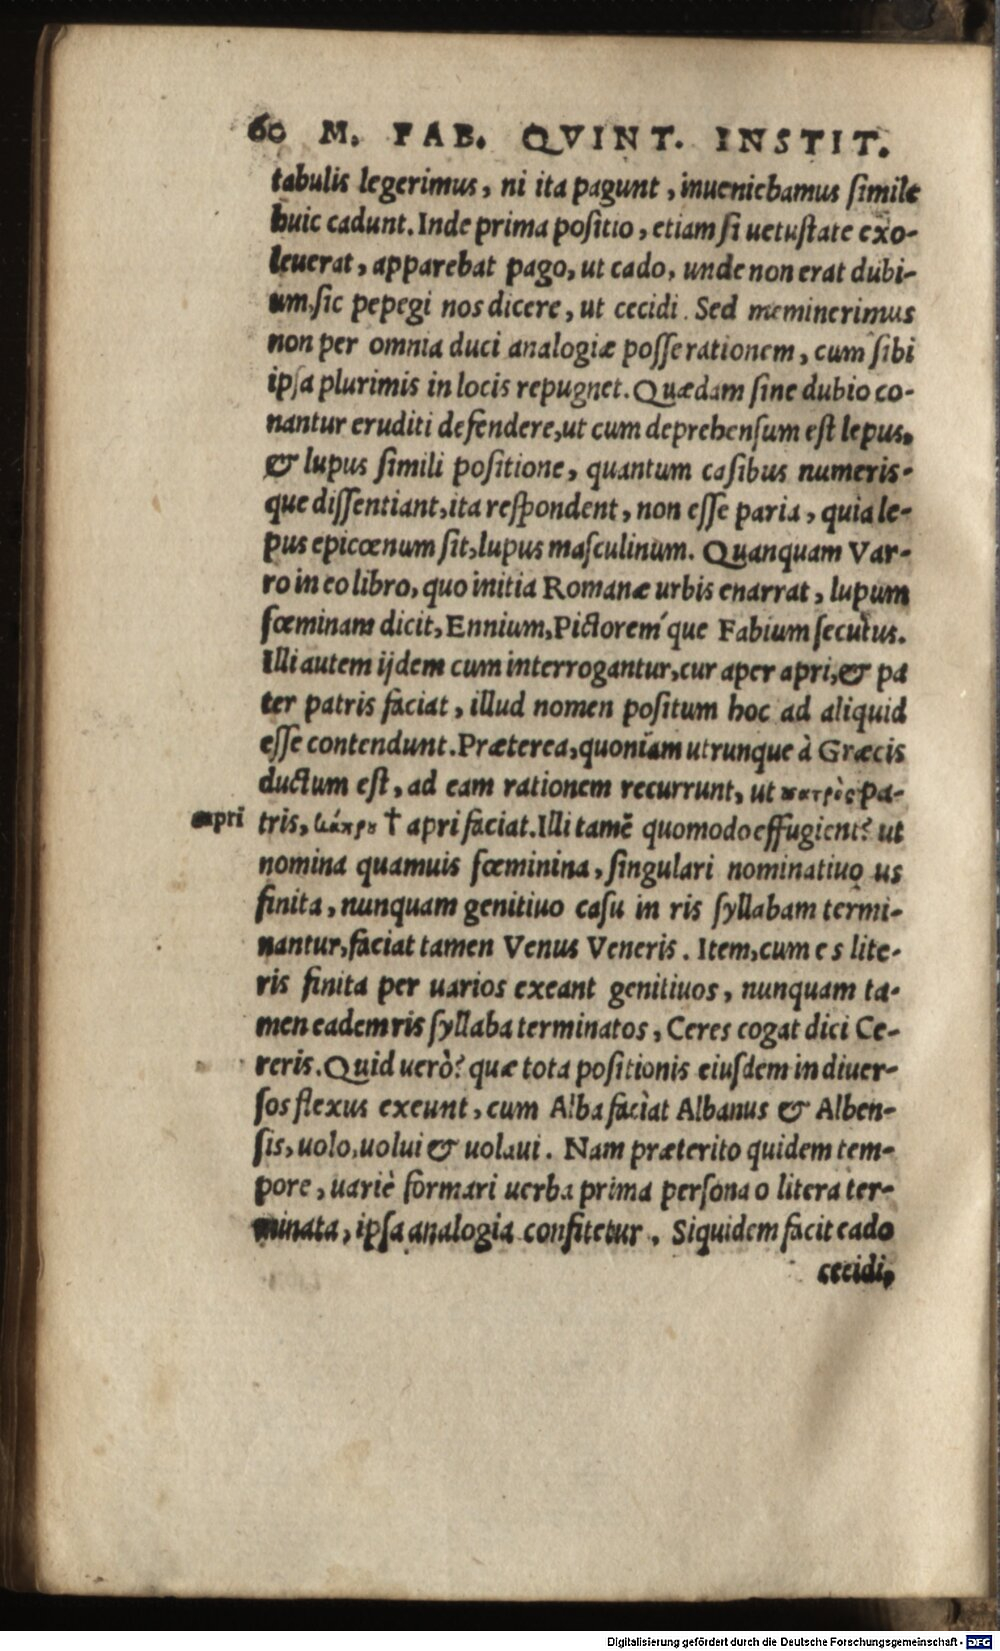 60 M. FAB. QVINT. INSTIT.
tabulis legerimus, ni ita pagunt, inueniebamus simile
huic cadunt. Inde prima positio, etiam si uetustate exo-
leuerat, apparebat pago, ut cado, unde non erat dubi-
um, sic pepegi nos dicere, ut cecidi. Sed meminerimus
non per omnia duci analogiæ posse rationem, cum sibi
ipsa plurimis in locis repugnet. Quædam sine dubio co-
nantur eruditi defendere, ut cum deprehensum est lepus,
& lupus simili positione, quantum casibus numeris-
que dissentiant, ita respondent, non esse paria, quia le-
pus epicœnum sit, lupus masculinum. Quanquam Var-
ro in eo libro, quo initia Romanæ urbis enarrat, lupum
fœminam dicit, Ennium, Pictoreḿque Fabium secutus.
Illi autem ijdem cum interrogantur, cur aper apri, & pa
ter patris faciat, illud nomen positum hoc ad aliquid
esse contendunt. Præterea, quoniam utrunque à Græcis
ductum est, ad eam rationem recurrunt, ut πατρὸς pa-
capri tris, κάπρου † apri faciat. Illi tamẽ quomodo effugient? ut
nomina quamuis fœminina, singulari nominatiuo us
finita, nunquam genitiuo casu in ris syllabam termi-
nantur, faciat tamen Venus Veneris. Item, cum e s lite-
ris finita per uarios exeant genitiuos, nunquam ta-
men eadem ris syllaba terminatos, Ceres cogat dici Ce-
reris. Quid uerò? quæ tota positionis eiusdem in diuer-
sos flexus exeunt, cum Alba faciat Albanus & Alben-
sis, uolo, uolui & uolaui. Nam præterito quidem tem-
pore, uariè formari uerba prima persona o litera ter-
minata, ipsa analogia confitetur. Siquidem facit cado
cecidi,
Digitalisierung gefördert durch die Deutsche Forschungsgemeinschaft - DFG